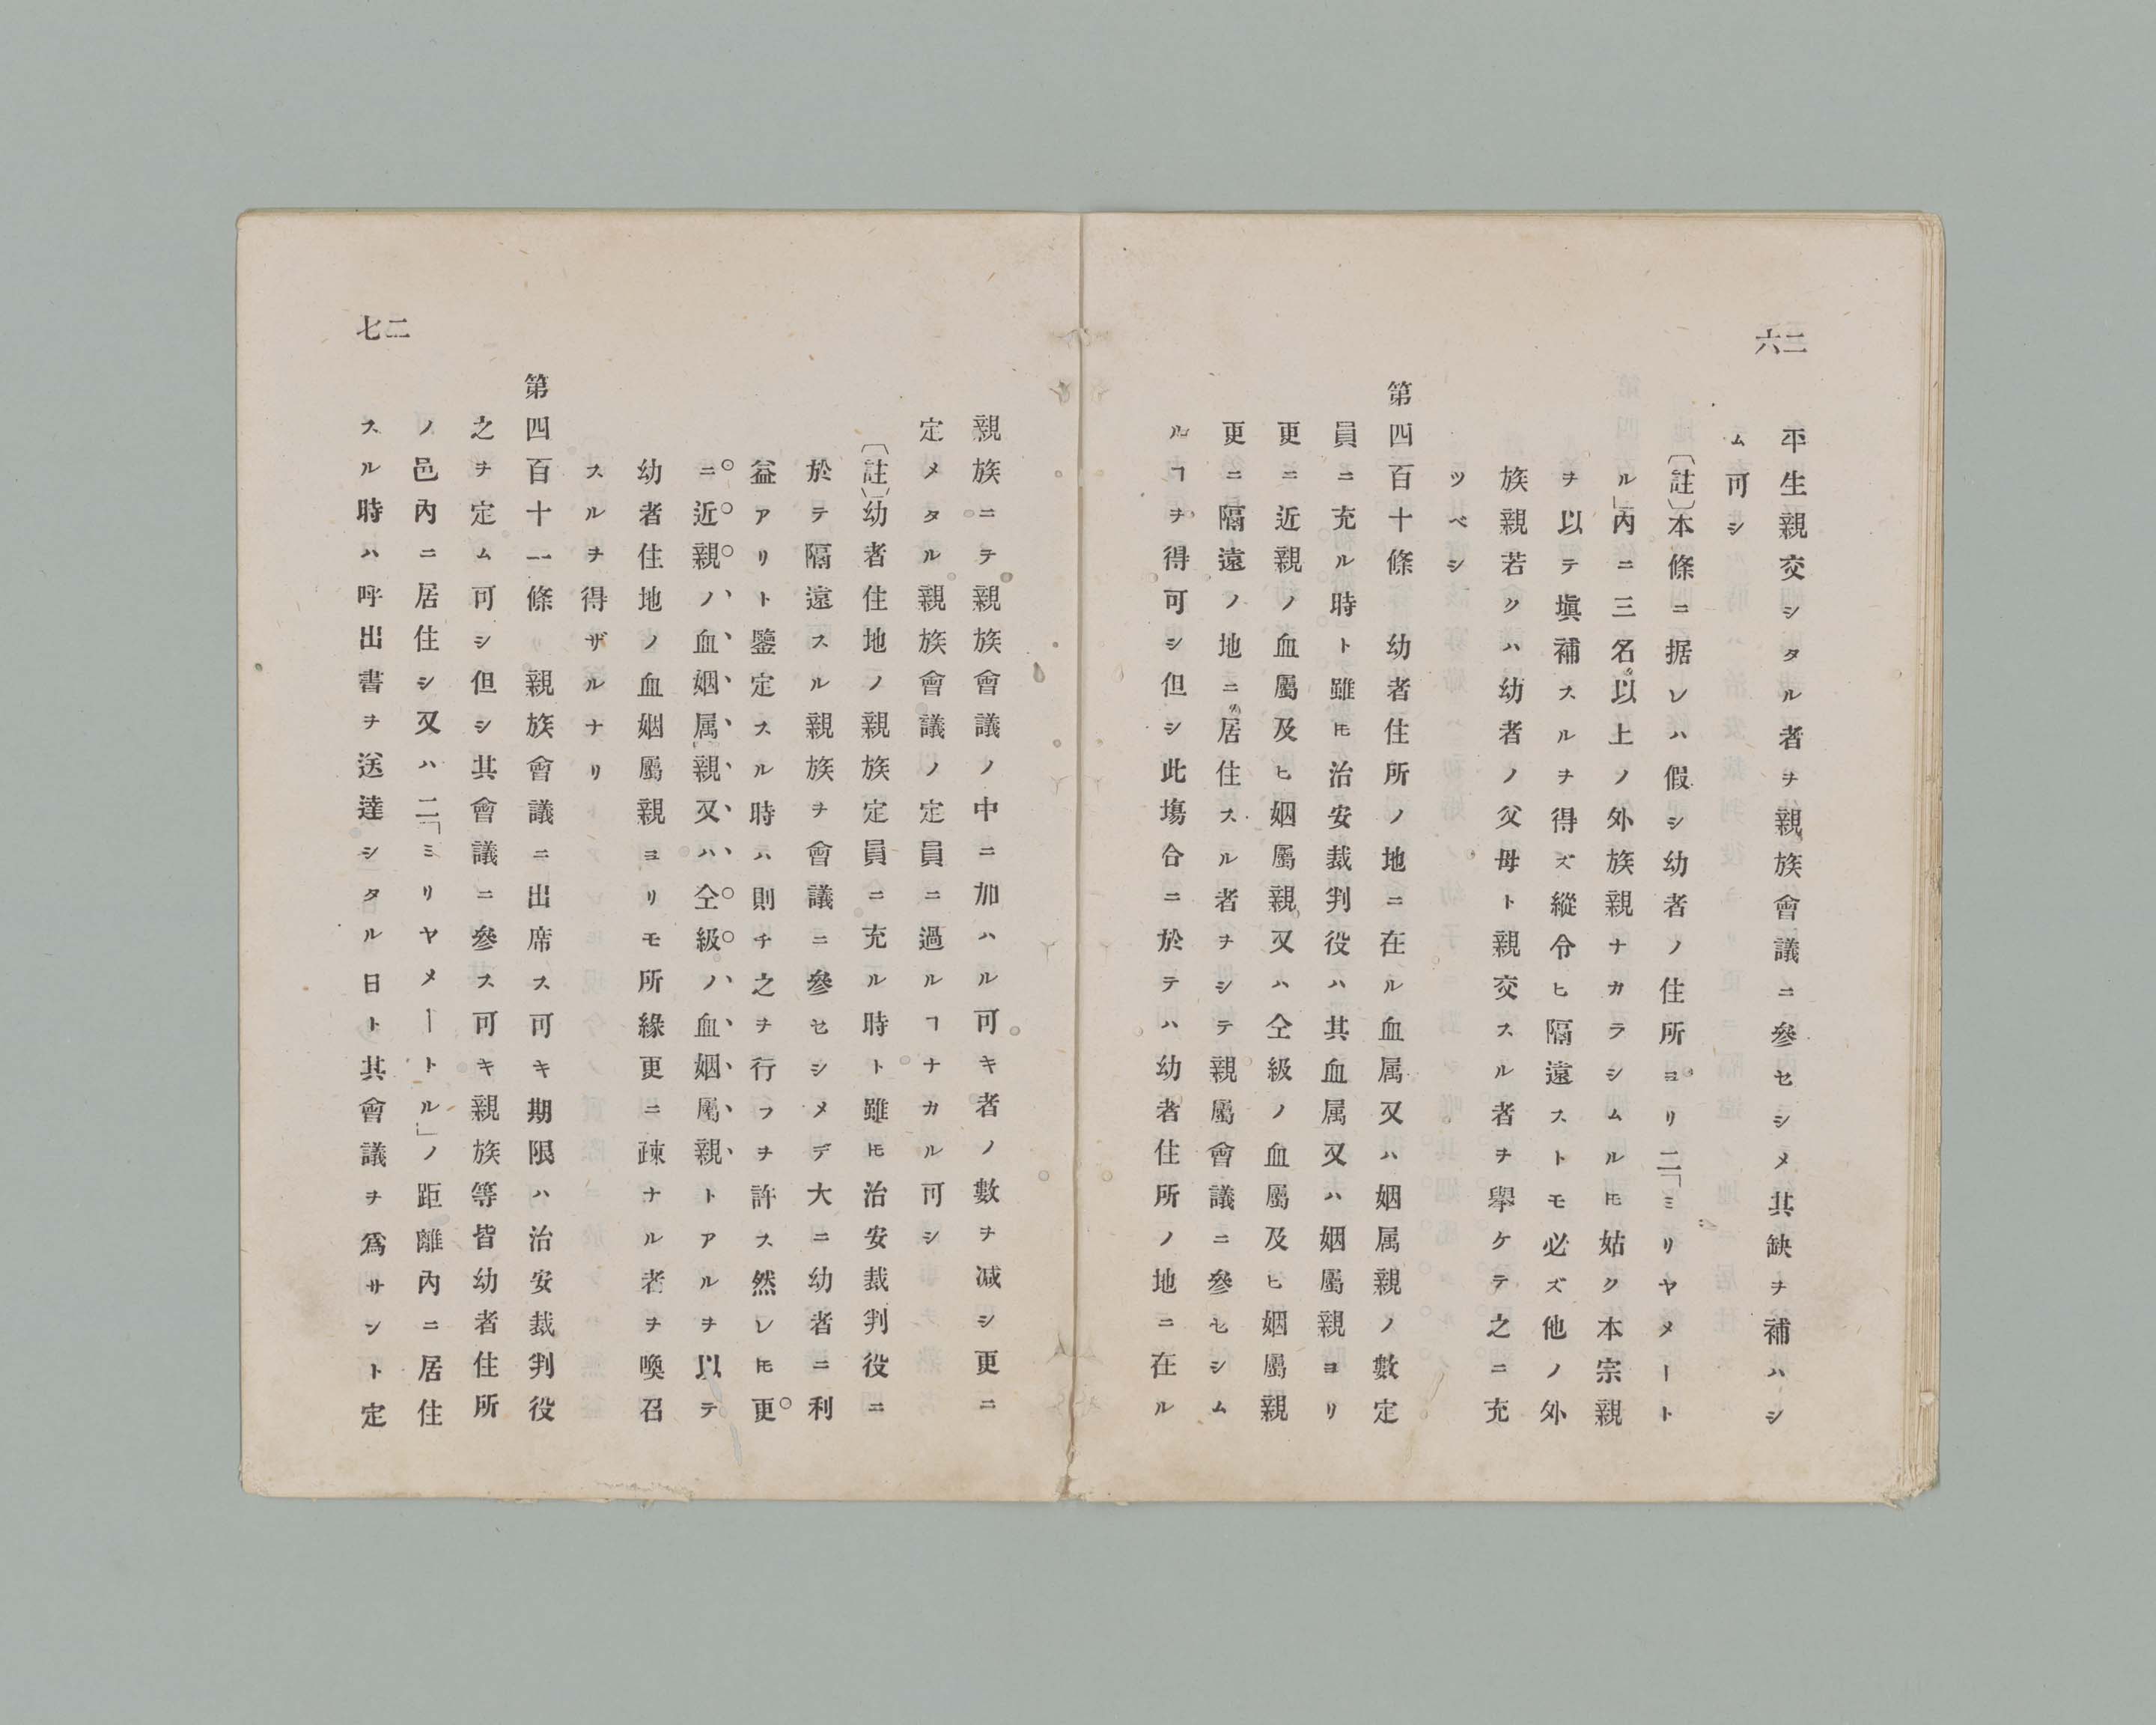 二六
平生親交シタル者ヲ親族會議ニ參セシメ其缺ヲ補ハシ
ム可シ
〔註〕本條ニ据レハ假シ幼者ノ住所ヨリ二「ミリヤメート
ル」內ニ三名以上ノ外族親ナカラシムルㇳモ姑ク本宗親
ヲ以テ塡補スルヲ得ズ縱令ヒ隔遠ストモ必ズ他ノ外
族親若クハ幼者ノ父母ト親交スル者ヲ擧ケテ之ニ充
ツベシ
第四百十條　幼者住所ノ地ニ在ル血属又ハ姻属親ノ數定
員ニ充ル時ト雖モ治安裁判役ハ其血属又ハ姻屬親ヨリ
更ニ近親ノ血屬及ヒ姻屬親又ハ仝級ノ血屬及ヒ姻屬親
更ニ隔遠ノ地ニ居住スル者ヲシテ親屬會議ニ參セシム
ルヿヲ得可シ但シ此塲合ニ於テハ幼者住所ノ地ニ在ル
二七
親族ニテ親族會議ノ中ニ加ハル可キ者ノ數ヲ減シ更ニ
定メタル親族會議ノ定員ニ過ルヿナカル可シ
〔註〕幼者住地ノ親族定員ニ充ル時ト雖モ治安裁判役ニ
於テ隔遠スル親族ヲ會議ニ參セシメデ大ニ幼者ニ利
益アリト鑒定スル時ハ則チ之ヲ行フヲ許ス然レㇳモ更
ニ近親ノ血姻属親又ハ仝級ノ血姻屬親トアルヲ以テ
幼者住地ノ血姻屬親ヨリモ所緣更ニ疎ナル者ヲ喚召
スルヲ得ザルナリ
第四百十一條　親族會議ニ出席ス可キ期限ハ治安裁判役
之ヲ定ム可シ但シ其會議ニ參ス可キ親族等皆幼者住所
ノ邑內ニ居住シ又ハ二「ミリヤメートル」ノ距離內ニ居住
スル時ハ呼出書ヲ送達シタル日ト其會議ヲ爲サント定